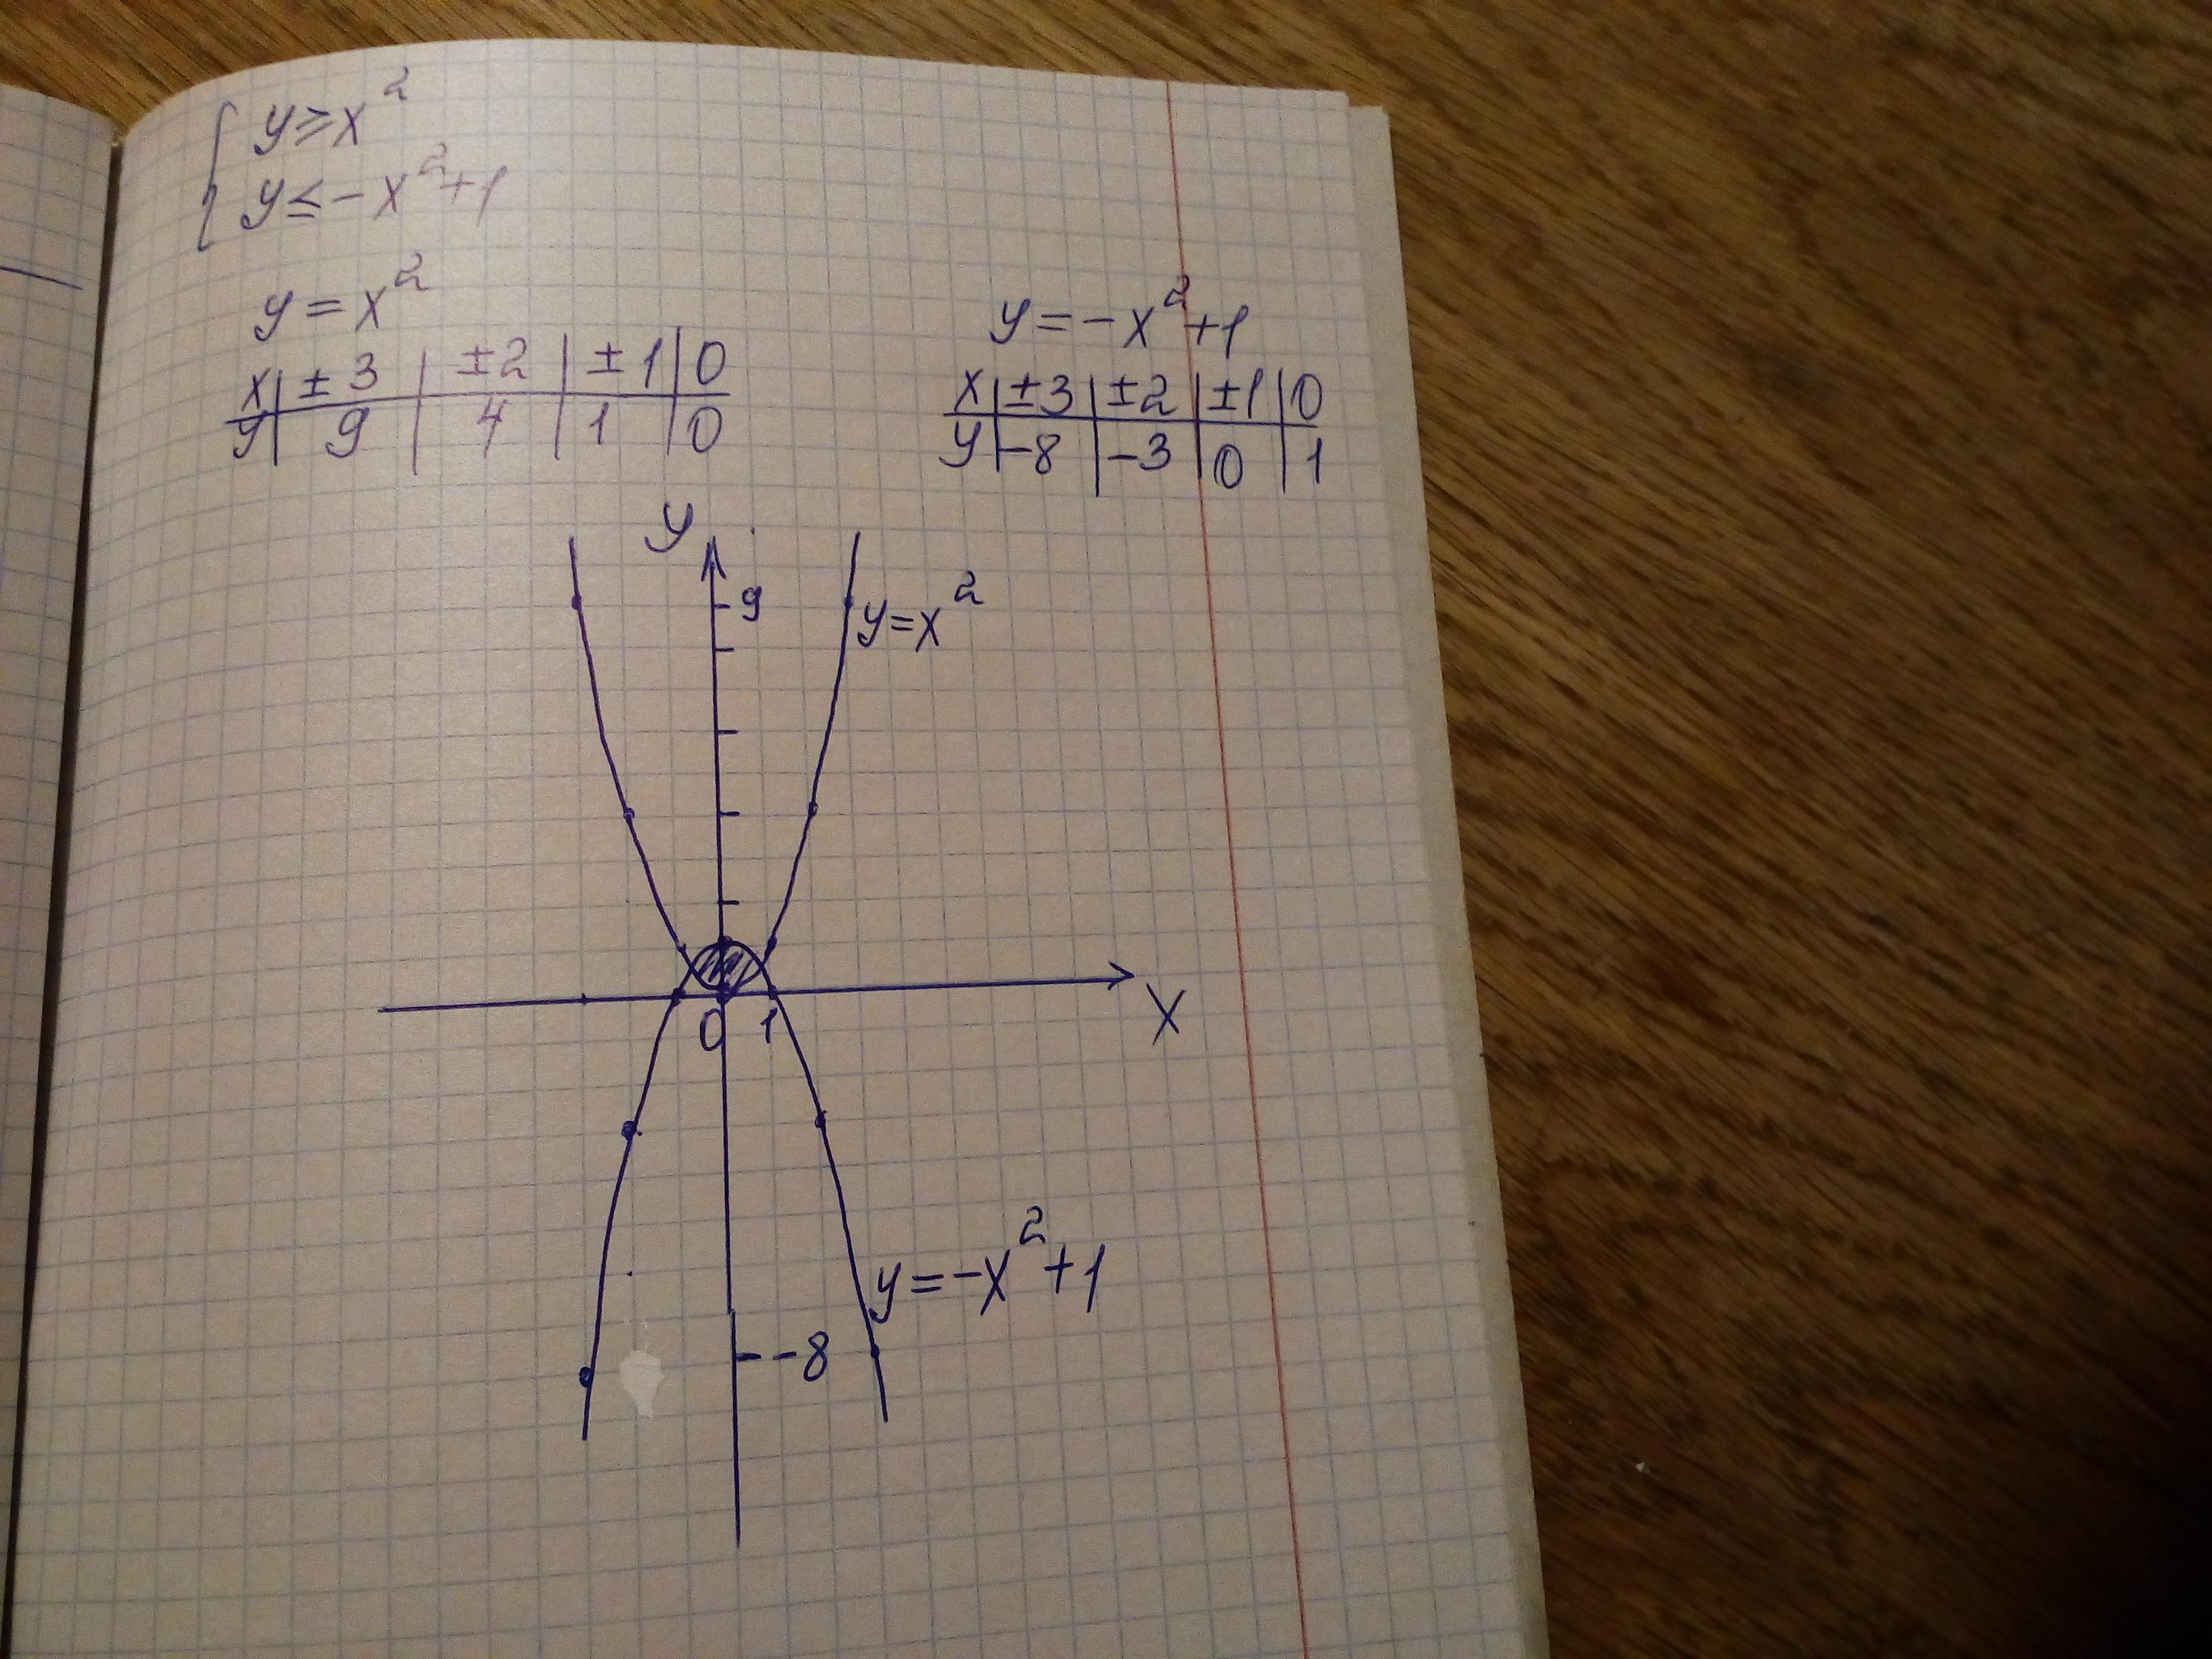 { y ≥ x²
y ≤ -x²+1
y = x²
x | ±3 | ±2 | ±1 | 0
y | 9 | 4 | 1 | 0
y = -x²+1
x | ±3 | ±2 | ±1 | 0
y | -8 | -3 | 0 | 1
y
9
y=x²
0 1
x
y=-x²+1
-8